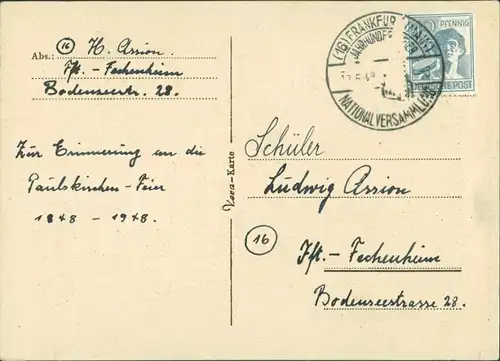 Abs.: (16) H. Assion
Fft. - Fechenheim
Bodenseestr. 28.
Zur Erinnerung an die
Paulskirchen - Feier
1848 - 1948.
Vera-Karte
(16) FRANKFUR (MAIN)
JAHRHUNDERTFEIER
NATIONALVERSAMMLUNG
PFENNIG
DEUTSCHE POST
Schüler
Ludwig Assion
16
Fft. - Fechenheim
Bodenseestrasse 28.